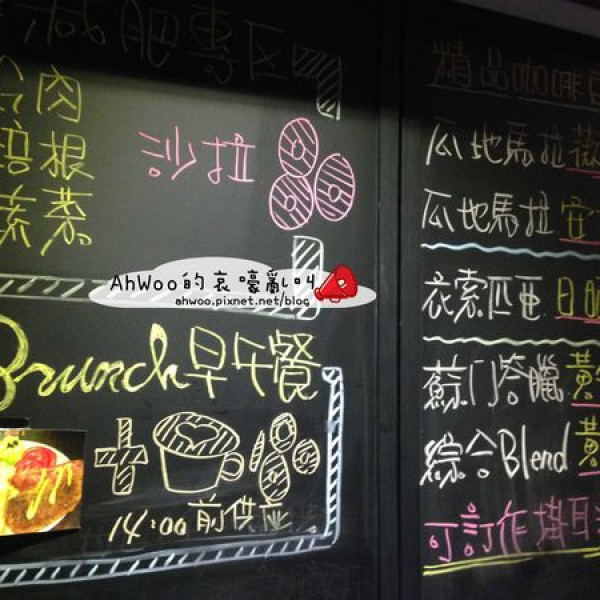 減肥專区
肉
培根
燕麥
沙拉
AhWoo的哀嚎亂叫
ahwoo.pixnet.net/blog
Brunch早午餐
14:00前供应
精品咖啡豆
瓜地馬拉
瓜地馬拉 安
衣索匹亞 日晒
蘇门答臘 黃
綜合Blend 黃
可訂作掛耳